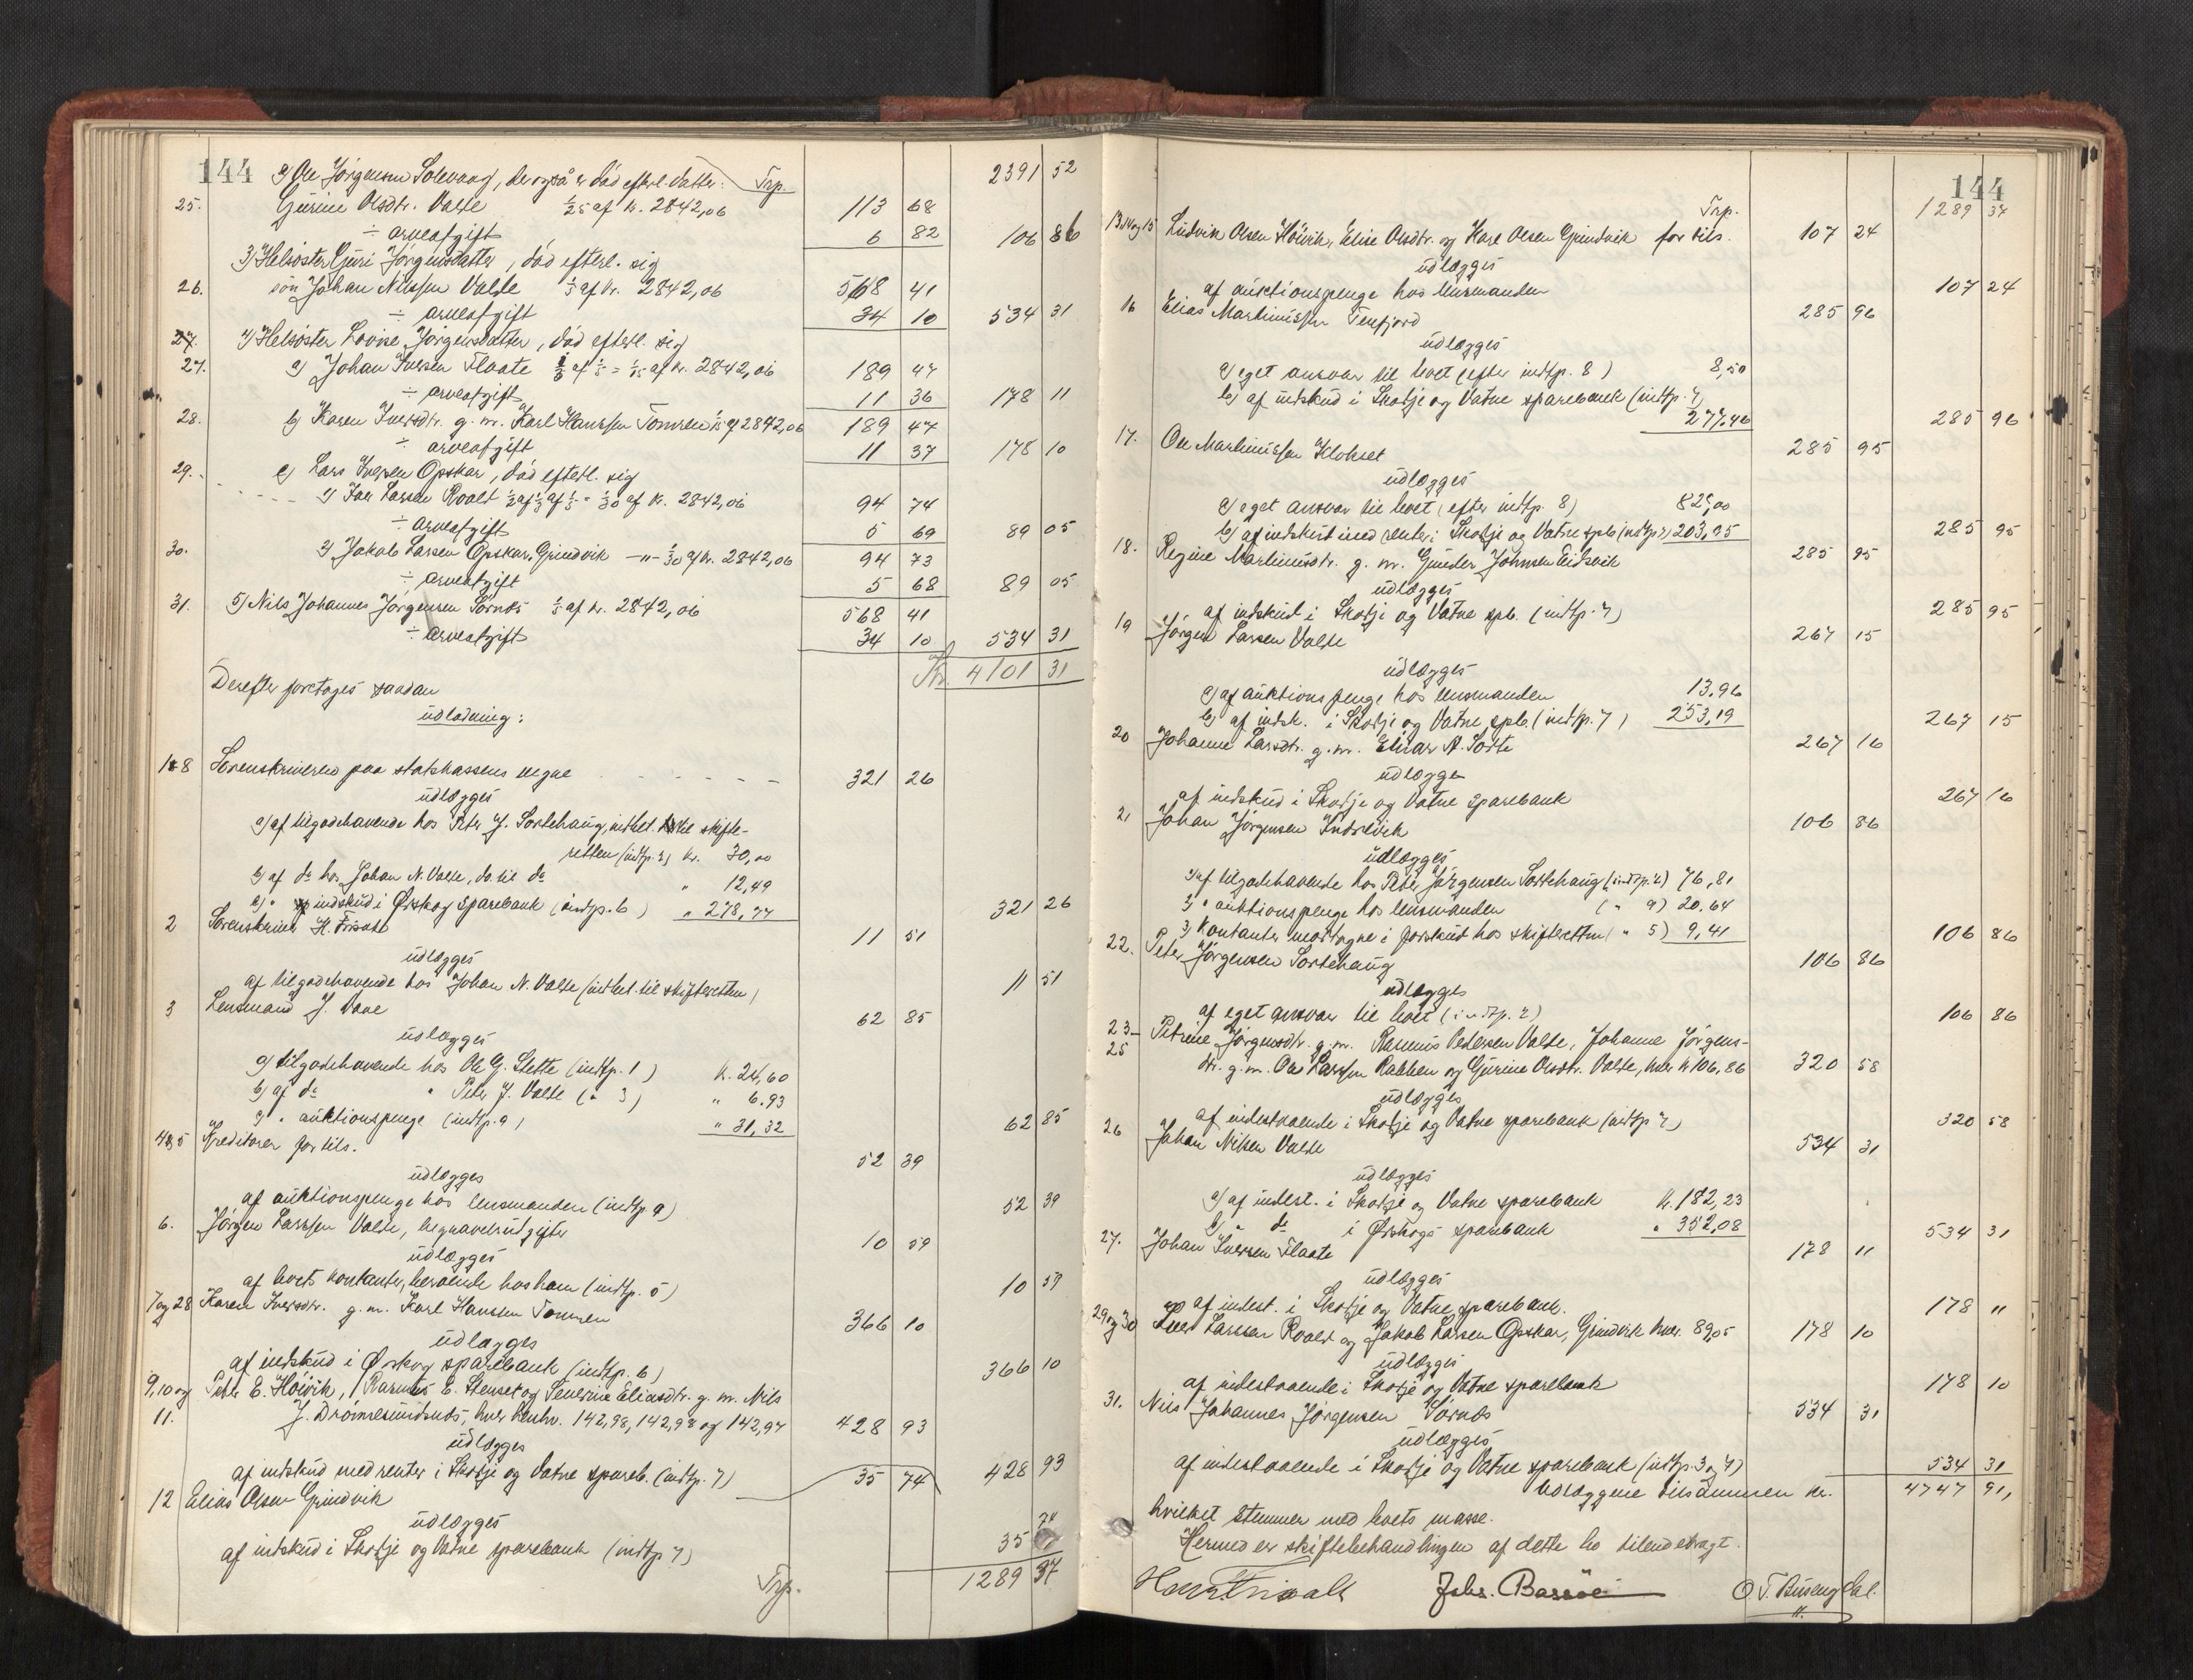 144 2) Ole Jörgensen Solevaag, der også er död efterl. datter: Trp. 2391 52
25. Gurine Olsdtr. Valde 1/25 af kr. 2842,06 113 68
÷ arveafgift 6 82 106 86
3) Helsöster Guri Jörgensdatter, död efterl. sig
26. sön Johan Nilssen Valde 1/5 af kr. 2842,06 568 41
÷ arveafgift 34 10 534 31
27. 4) Helsöster Lovise Jörgensdatter, död efterl. sig
27. a) Johan Iversen Flaate 1/3 af 1/5 = 1/15 af kr. 2842,06 189 47
÷ arveafgift 11 36 178 11
28. b) Karen Iversdtr. g. m. Karl Hanssen Tomren 1/15 af 2842,06 189 47
÷ arveafgift 11 37 178 10
29. c) Lars Iversen Opskar, död efterl. sig
1) Iver Larsen Roald 1/2 af 1/3 af 1/5 = 1/30 af kr. 2842,06 94 74
÷ arveafgift 5 69 89 05
30. 2) Jakob Larsen Opskar, Grindvik —„— 1/30 af kr. 2842,06 94 73
÷ arveafgift 5 68 89 05
31. 5) Nils Johannes Jörgensen Sörnes 1/5 af kr. 2842,06 568 41
÷ arveafgift 34 10 534 31
Kr. 4101 31
Derefter foretages saadan
udlodning:
1&8 Sorenskriveren paa statskassens vegne 321 26
udlægges
a) af tilgodehavende hos Peter J. Sortehaug, indbet. til skifte-
retten (indtp. 2) kr. 30,00
b) af do hos Johan N. Valde, do. til do " 12,49
c) " indskud i Ørskog Sparebank (indtp. 6) " 278,77 321 26
2 Sorenskriver H. Trisolt 11 51
udlægges
af tilgodehavende hos Johan N. Valde (indbet. til skifteretten) 11 51
3 Lensmand J. Vaae 62 85
udlægges
a) tilgodehavende hos Ole G. Stette (indtp. 1) kr. 24,60
b) af do " Peter J. Valde (" 3) " 6.93
c) " auktionspenge (indtp. 9) " 31,32 62 85
4&5 Kreditorer for tils. 52 39
udlægges
af auktionspenge hos lensmanden (indtp. 9) 52 39
6. Jörgen Larssen Valde, begravelsutgifter 10 59
udlægges
af boets kontanter, beroende hos ham (indtp. 5) 10 59
7 og 28 Karen Iversdtr. g. m. Karl Hanssen Tomren 366 10
udlægges
af indskud i Ørskog sparebank (indtp. 6) 366 10
9, 10 og Peter E. Höivik, Rasmus E. Stenset og Severine Eliasdtr. g. m. Nils
11. J. Drönnesundsnes, hver henhv. 142,98, 142,98 og 142,97 428 93
udlægges
af indskud med renter i Skodje og Vatne spareb. (indtp. 7) 428 93
12 Elias Olsen Grindvik 35 74
udlægges
af indskud i Skodje og Vatne sparebank (indtp 7) 35 74
Trp. 1289 37
144
Trp. 1289 37
13, 14 og 15 Ludvik Olsen Höivik, Elise Olsdtr. og Karl Olsen Grindvik for tils. 107 24
udlægges
af auktionspenge hos lensmanden 107 24
16 Elias Martinussen Tenfjord 285 96
udlægges
a) eget ansvar til boet (efter indtp. 8) 8,50
b) af indskud i Skodje og Vatne sparebank (indtp. 7)
277,46 285 96
17. Ole Martinussen Klokset 285 95
udlægges
a) eget ansvar til boet (efter indtp. 8) 82,00
b) af indskud med renter i Skodje og Vatne spb. (indtp 7) 203,95 285 95
18. Regine Martinusdtr. g. m. Gunder Johnsen Eidsvik 285 95
udlægges
af indskud i Skodje og Vatne spb. (indtp. 7) 285 95
19 Jörgen Larsen Valde 267 15
udlægges
a) af auktionspenge hos lensmanden 13.96
b) af indsk. i Skodje og Vatne spb. (indtp. 7) 253,19 267 15
20 Johanne Larsdtr. g. m. Elias A. Sorte 267 16
udlægge
af indskud i Skodje og Vatne sparebank 267 16
21 Johan Jörgensen Indrevik 106 86
udlægges
1) af tilgodehavende hos Peter Jörgensen Sortehaug (indtp. 2) 76,81
2) " auktionspenge hos lensmanden (" 9) 20.64
3) Kontanter modtagne i forskud hos skifteretten (" 5) 9,41 106 86
22. Peter Jörgensen Sortehaug 106 86
udlægges
af eget ansvar til boet (indtp. 2) 106 86
23– Petrine Jörgensdtr. g. m. Rasmus Pedersen Valde, Johanne Jörgens-
25 dtr. g. m. Ole Larssen Rabben og Gurine Olsdtr. Valde, hver kr 106,86 320 58
udlægges
af indestaaende i Skodje og Vatne sparebank (indtp 7) 320 58
26 Johan Nilsen Valde 534 31
udlægges
a) af indest. i Skodje og Vatne sparebank kr. 182,23
b) " do i Ørskogs sparebank " 352,08 534 31
27. Johan Iversen Flaate 178 11
udlægges
af indest. i Skodje og Vatne sparebank. 178 11
29 og 30 Iver Larssen Roald og Jakob Larsen Opskar, Grindvik hver 89,05 178 10
udlægges
af indestaaende i Skodje og Vatne sparebank 178 10
31. Nils Johannes Jörgensen Sörnes 534 31
udlægges
af indestaaende i Skodje og Vatne sparebank (indtp. 3 og 7) 534 31
Udlæggene tilsammen kr. 4747 91,
hvilket stemmer med boets masse.
Hermed er skiftebehandlingen af dette bo tilendebragt.
Johs. Bassöe O. T. Busengdal.